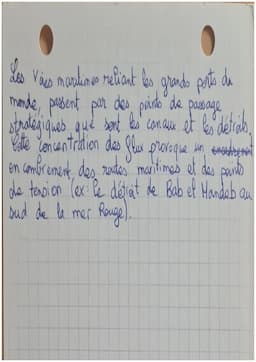 Les voies maritimes reliant les grands ports du
monde, passent par des points de passage
stratégiques que sont les canaux et les détroits.
Cette concentration des flux provoque un
encombrement des routes maritimes et des points
de tension (ex: le détroit de Bab el Mandeb au
sud de la mer Rouge).